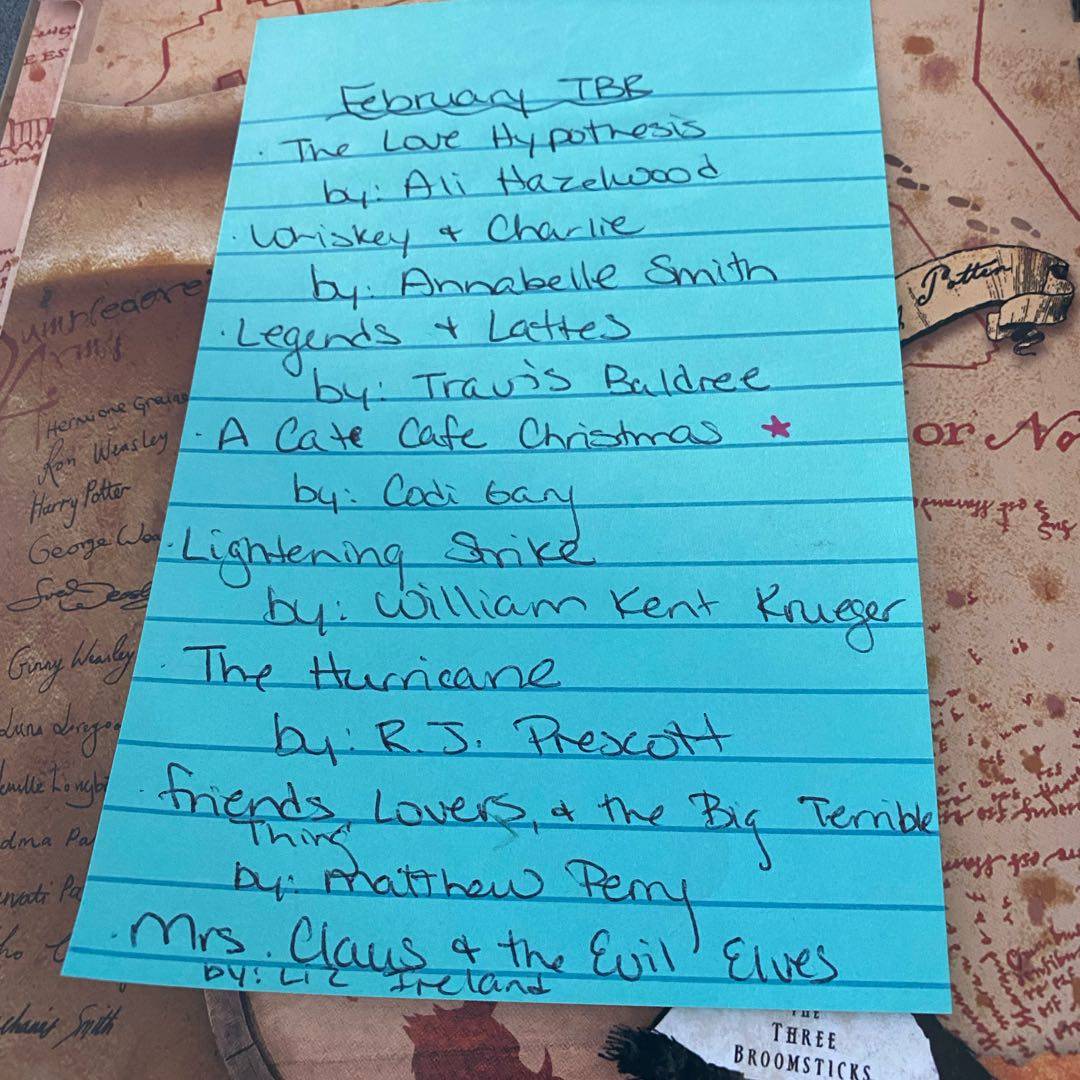 February TBR
· The Love Hypothesis
by: Ali Hazelwood
· Whiskey & Charlie
by: Annabelle Smith
· Legends & Lattes
by: Travis Baldree
· A Cate Cafe Christmas ★
by: Codi Gary
· Lightening Strike
by: William Kent Krueger
· The Hurricane
by: R.J. Prescott
· Friends, Lovers, & the Big Terrible
Thing
by: Matthew Perry
· Mrs. Claus & the Evil Elves
by: Liz Ireland
Dumbledore
Arm
Hermione Grange
Ron Weasley
Harry Potter
George Wea
Fred Weasl
Ginny Weasley
Luna Lovegoo
Neville Longb
adma Pa
arvati Pa
ho C
Smith
Potter
or No
THE
THREE
BROOMSTICKS